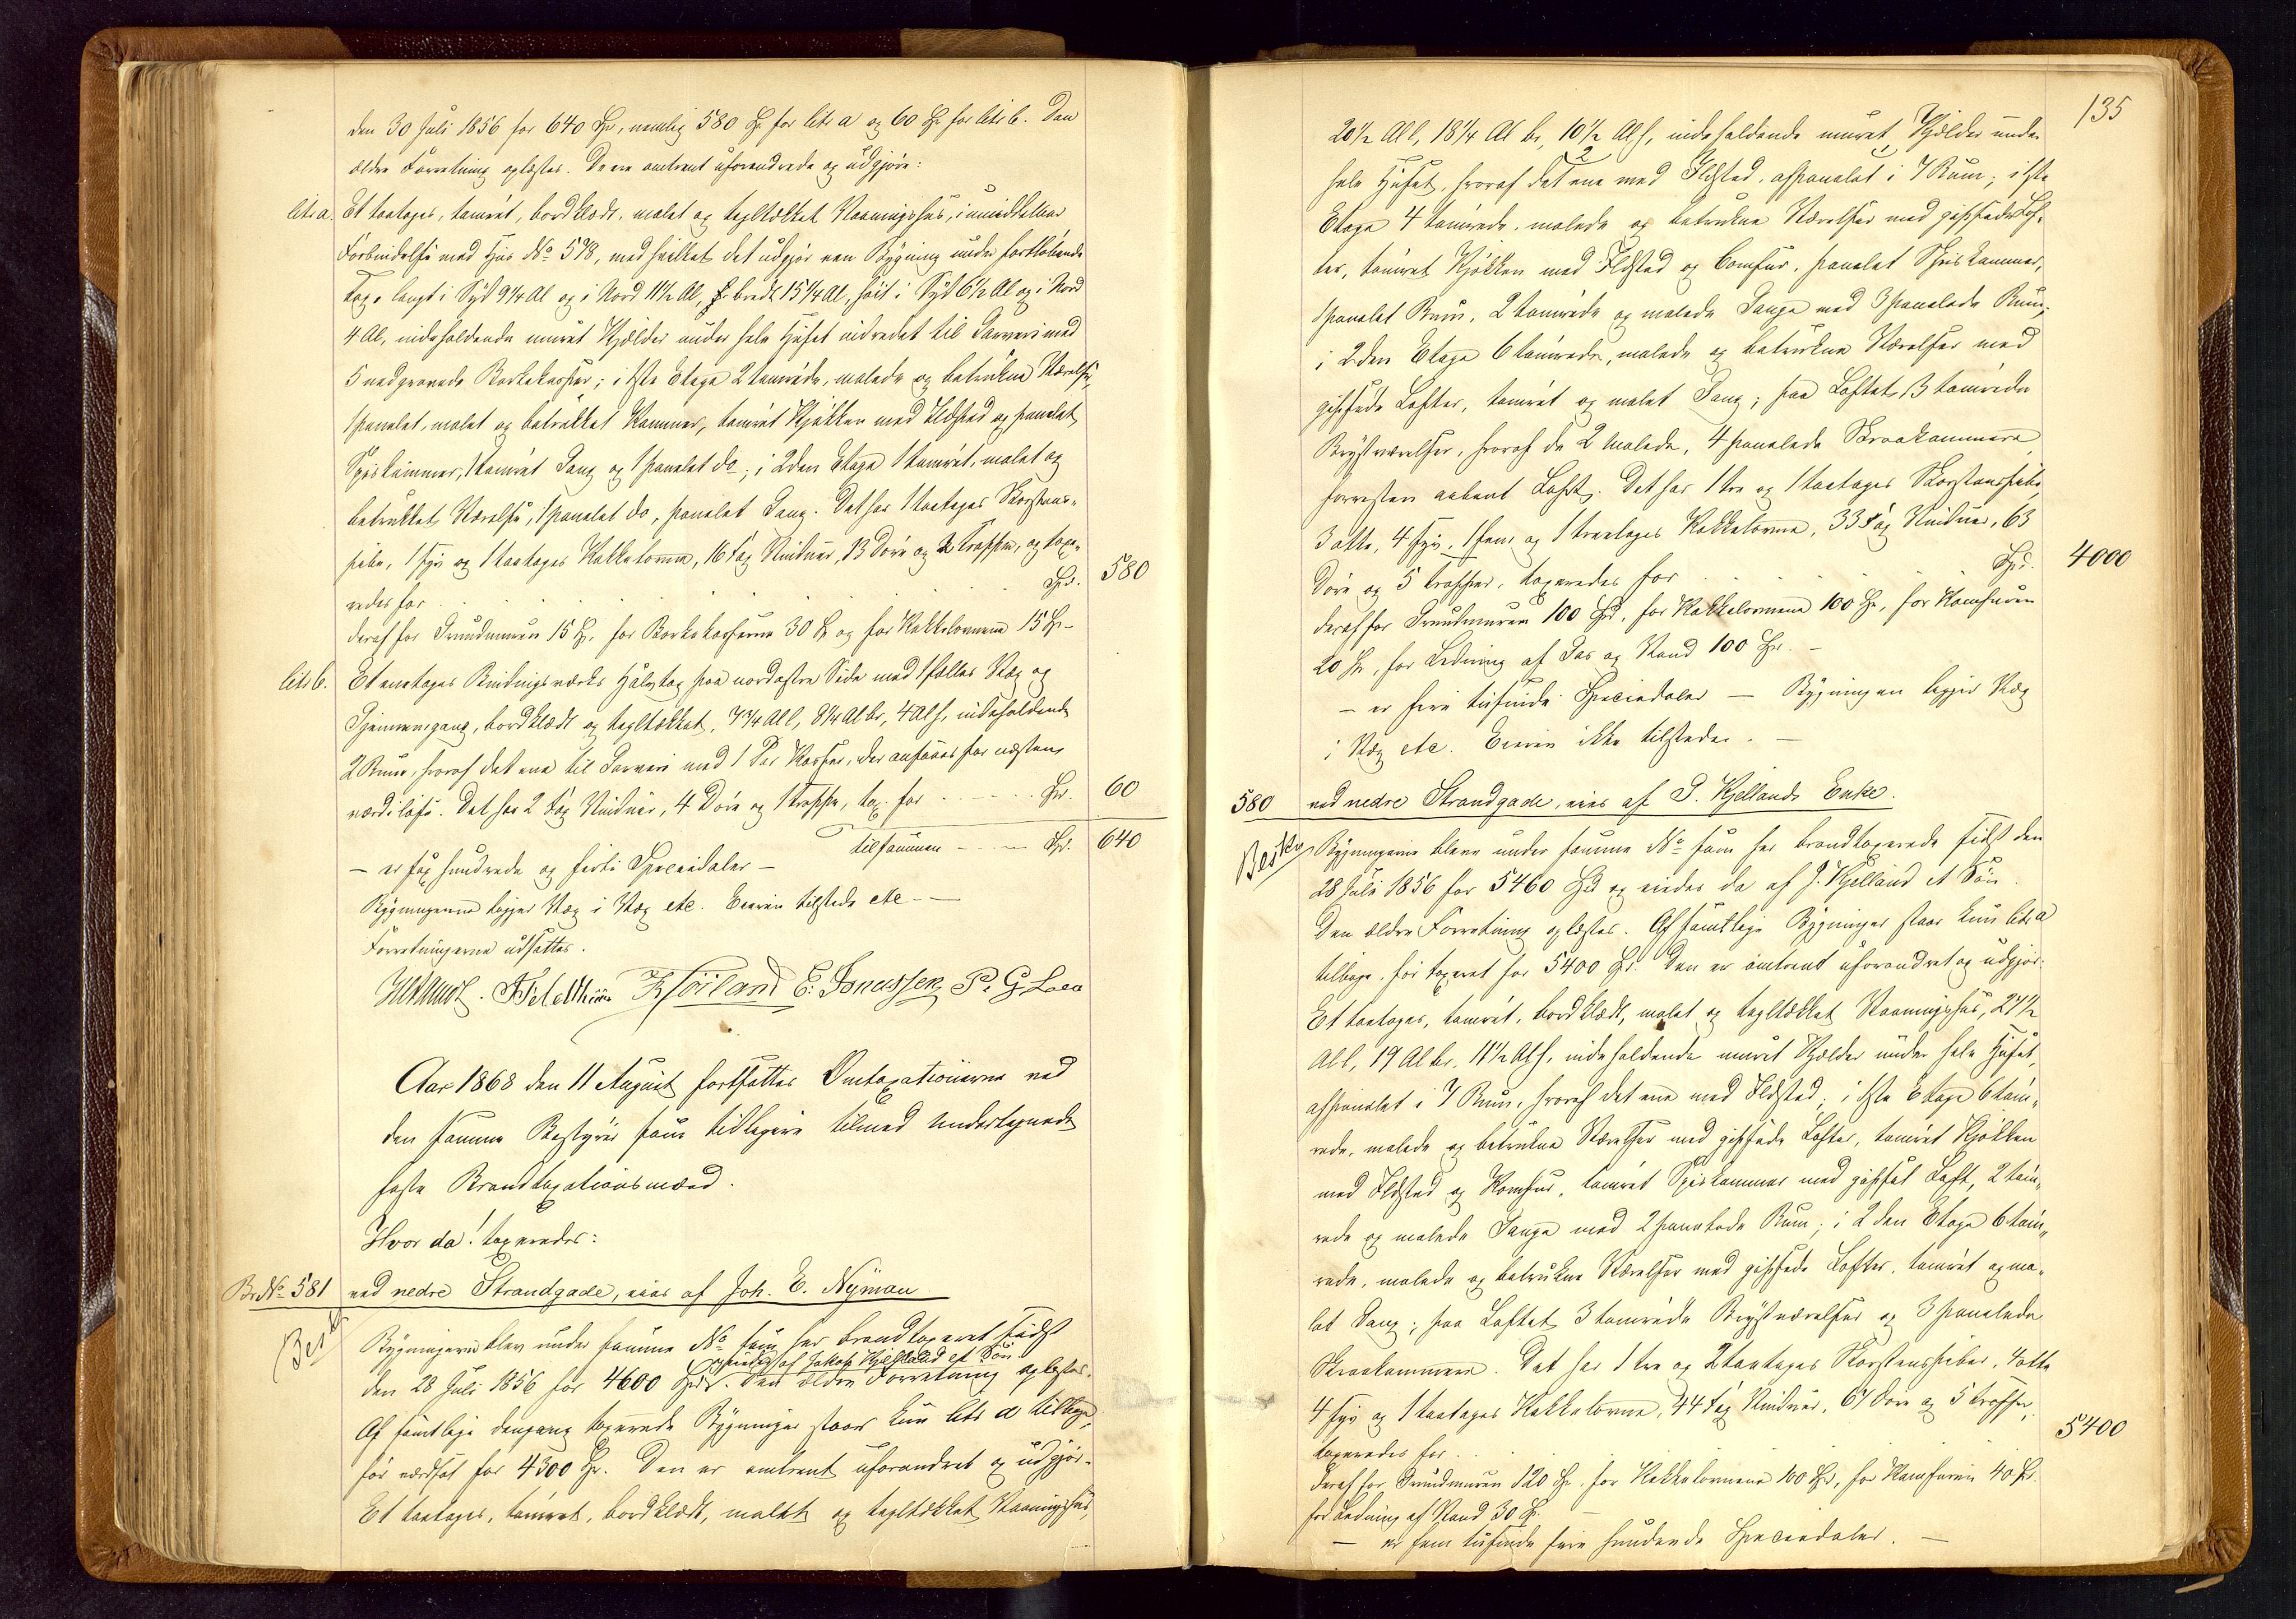 den 30 Juli 1856 for 640 Spd, nemlig 580 Spd for litr a og 60 Spd for litr b. Den
ældre Forretning oplæstes. De ere omtrent uforandrede og udgjøre:
litr a. Et toetages, tømret, bordklædt, malet og tegltækket Vaaningshus, i umiddelbar
Forbindelse med Hus No 578, med hvilket det udgjør een Bygning under fortløbende
Tag, langt i Syd 9 1/4 Al og i Nord 11 1/2 Al, bredt 15 1/4 Al, høit i Syd 6 1/2 Al og i Nord
4 Al, indeholdende muret Kjelder under hele Huset indredet til Garveri med
5 nedgravede Barkekarser; i 1ste Etage 2 tømrede, malede og betrukne Værelser,
1 panelet, malet og betrukket Kammer, tømret Kjøkken med Ildsted og panelet
Spiskammer, 1 tømret Gang og 1 panelet do; i 2den Etage 1 tømret, malet og
betrukket Værelse, 1 panelet do, panelet Gang. Det har 1 toetages Skorstens-
pibe, 1 fyr og 1 toetages Kakkelovne, 16 Fag Vinduer, 13 Døre og 2 Trapper, og taxe-
redes for . . . . . . . . Spd. 580
deraf for Grundmuren 15 Spd, for Barkekarserne 30 Spd og for Kakkelovnene 15 Spd -
litr b. Et enetages Bindingsværks Halvtag paa nordøstre Side med 1 fælles Væg og
Gjennemgang, bordklædt og tegltækket, 7 3/4 Al l, 8 1/4 Al br, 4 Al h, indeholdende
2 Rum, hvoraf det ene til Garveri med 1 Par Karser, der ansaaes for næsten
værdiløse. Det har 2 Fag Vinduer, 4 Døre og 1 Trappe, tax. for . . . . Spd. 60
tilsammen - - - Spd. 640
- er sex hundrede og firti Speciedaler -
Bygningerne ligger Væg i Væg etc. Eieren tilstede etc - -
Forretningerne udsattes.
F. Feldthuus K Høiland E. Jonassen P. G. Loen
Aar 1868 den 11 August fortsattes Omtaxationerne ved
den samme Bestyrer som tidligere tilmed undertegnede
faste Brandtaxationsmænd.
Hvor da! taxeredes:
Br. No 581 ved nedre Strandgade, eies af Joh. E. Nyman
Besk
Bygningerne blev under samme No som her brandtaxeret sidst
og eiedes af Jakob Kjelland et Søn
den 28 Juli 1856 for 4600 Spd. Den ældre Forretning oplæstes.
Af samtlige dengang taxerede Bygninger staar kun litr a tilbage,
før værdsat for 4300 Spd. Den er omtrent uforandret og udgjør-
Et toetages, tømret, bordklædt, malet og tegltækket Vaaningshus,
135
20 1/2 Al l, 18 1/4 Al br, 10 1/2 Al h, indeholdende muret Kjelder under
2
hele Huset, hvoraf det ene med Ildsted, afpanelet i 7 Rum; i 1ste
Etage 4 tømrede, malede og betrukne Værelser med gipsede Lof-
ter, tømret Kjøkken med Ildsted og Comfur, panelet Spiskammer,
1 panelet Rum, 2 tømrede og malede Gange med 3 panelede Rum;
i 2den Etage 6 tømrede, malede og betrukne Værelser med
gipsede Lofter, tømret og malet Gang; paa Loftet 3 tømrede
Brystværelser, hvoraf de 2 malede, 4 panelede Skraakammere
forresten aabent Loft. Det har 1 tre og 1 toetages Skorstenspibe,
3 otte, 4 fyr, 1 fem og 1 treetages Kakkelovne, 33 Fag Vinduer, 63
Døre og 5 Trapper, taxeredes for . . . . Spd. 4000
deraf for Grundmuren 100 Spd, for Kakkelovnene 100 Spd, for Komfuren
20 Spd, for Ledning af Gas og Vand 100 Spd. -
- er fire tusinde Speciedaler - Bygningen ligger Væg
i Væg etc. Eieren ikke tilstede. -
580 ved nedre Strandgade, eies af J. Kjellands Enke.
Besk
Bygningerne bleve under samme No som her brandtaxerede sidst den
28 Juli 1856 for 5460 Spd og eiedes da af J. Kjelland et Søn.
Den ældre Forretning oplæstes. Af samtlige Bygninger staar kun litr a
tilbage, før taxeret for 5400 Spd. Den er omtrent uforandret og udgjør:
Et toetages, tømret, bordklædt, malet og tegltækket Vaaningshus, 24 1/2
Al l, 19 Al br, 11 1/2 Al h, indeholdende muret Kjelder under hele Huset,
afpanelet i 7 Rum, hvoraf det ene med Ildsted; i 1ste Etage 6 tøm-
rede, malede og betrukne Værelser med gipsede Lofter, tømret Kjøkken
med Ildsted og Komfur, tømret Spiskammer med gipset Loft, 2 tøm-
rede og malede Gange med 2 panelede Rum; i 2den Etage 6 tøm-
rede, malede og betrukne Værelser med gipsede Lofter, tømret og ma-
let Gang; paa Loftet 3 tømrede Brystværelser og 3 panelede
Skraakammere. Det har 1 tre og 2 toetages Skorstenspiber, 4 otte
4 fyr og 1 toetages Kakkelovne, 44 Fag Vinduer, 61 Døre og 5 Trapper,
taxeredes for . . . 5400
deraf for Grundmuren 120 Spd, for Kakkelovnene 100 Spd, for Komfuren 40 Spd.
for Ledning af Vand 30 Spd. -
- er fem tusinde fire hundrede Speciedaler. -